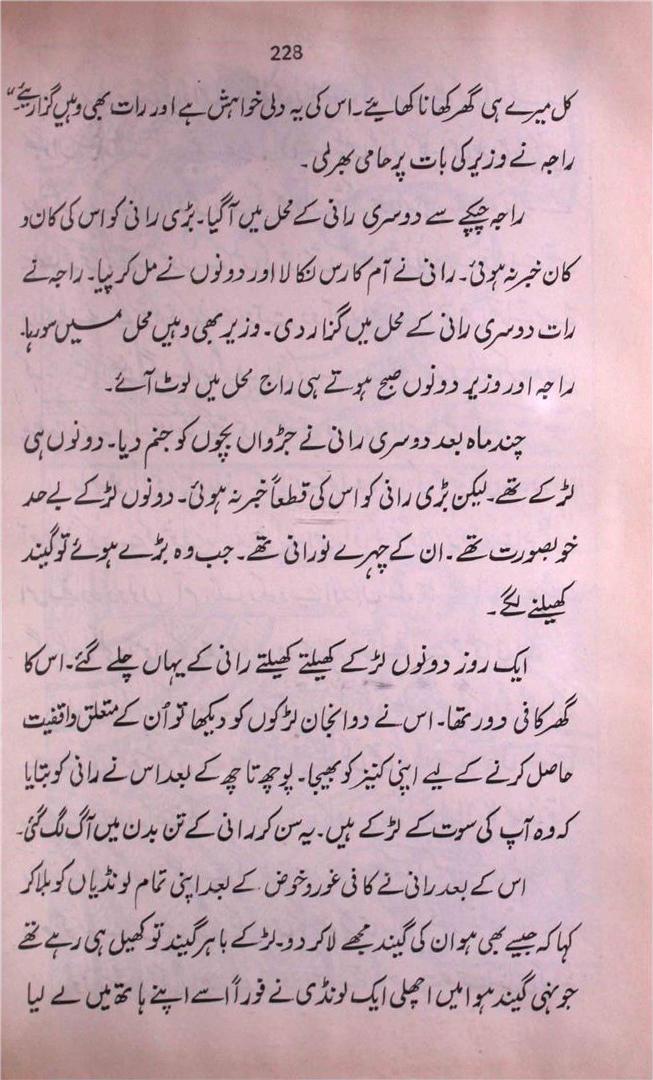 228
کل میرے ہی گھر کھانا کھایئے۔ اس کی یہ دلی خواہش ہے اور رات بھی وہیں گزاریئے۔"
راجہ نے وزیر کی بات پر حامی بھر لی۔
راجہ چپکے سے دوسری رانی کے محل میں آگیا۔ بڑی رانی کو اس کی کان و
کان خبر نہ ہوئی۔ رانی نے آم کا رس نکالا اور دونوں نے مل کر پیا۔ راجہ نے
رات دوسری رانی کے محل میں گزار دی۔ وزیر بھی وہیں محل میں سو رہا۔
راجہ اور وزیر دونوں صبح ہوتے ہی راج محل میں لوٹ آئے۔
چند ماہ بعد دوسری رانی نے جڑواں بچوں کو جنم دیا۔ دونوں ہی
لڑکے تھے۔ لیکن بڑی رانی کو اس کی قطعاً خبر نہ ہوئی۔ دونوں لڑکے بے حد
خوبصورت تھے۔ ان کے چہرے نورانی تھے۔ جب وہ بڑے ہوئے تو گیند
کھیلنے لگے۔
ایک روز دونوں لڑکے کھیلتے کھیلتے رانی کے یہاں چلے گئے۔ اس کا
گھر کافی دور تھا۔ اس نے دو انجان لڑکوں کو دیکھا تو اُن کے متعلق واقفیت
حاصل کرنے کے لیے اپنی کنیز کو بھیجا۔ پوچھ تاچھ کے بعد اس نے رانی کو بتایا
کہ وہ آپ کی سوت کے لڑکے ہیں۔ یہ سن کر رانی کے تن بدن میں آگ لگ گئی۔
اس کے بعد رانی نے کافی غور و خوض کے بعد اپنی تمام لونڈیاں کو بلا کر
کہا کہ جیسے بھی ہو ان کی گیند مجھے لا کر دو۔ لڑکے باہر گیند تو کھیل ہی رہے تھے
جونہی گیند ہوا میں اچھلی ایک لونڈی نے فوراً اسے اپنے ہاتھ میں لے لیا